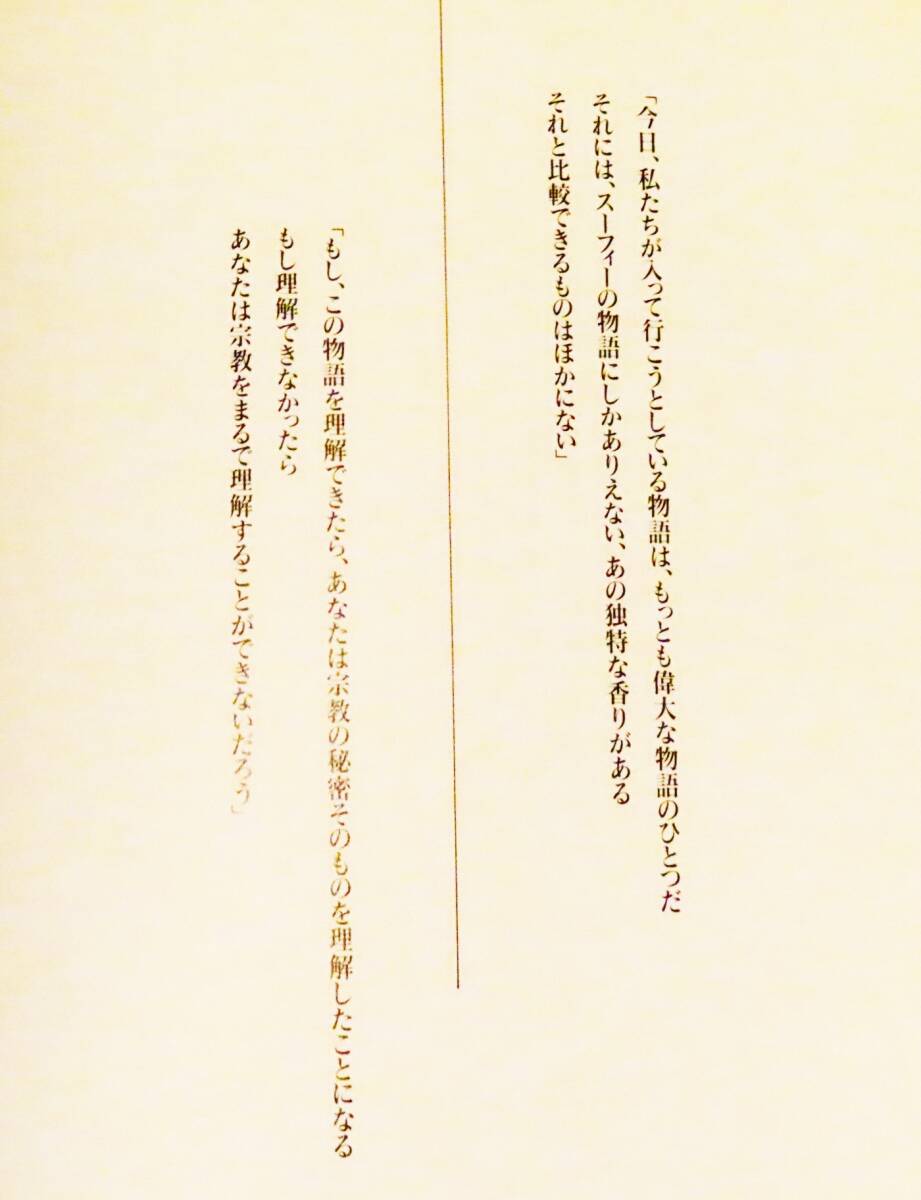 「今日、私たちが入って行こうとしている物語は、もっとも偉大な物語のひとつだ
それには、スーフィーの物語にしかありえない、あの独特な香りがある
それと比較できるものはほかにない」
「もし、この物語を理解できたら、あなたは宗教の秘密そのものを理解したことになる
もし理解できなかったら
あなたは宗教をまるで理解することができないだろう」